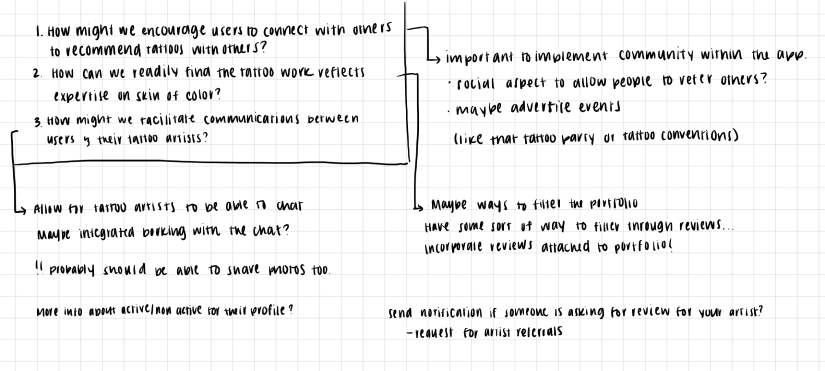 1. How might we encourage users to connect with others
to recommend tattoos with others?
2. How can we readily find the tattoo work reflects
expertise on skin of color?
3. How might we facilitate communications between
users y their tattoo artists?
important to implement community within the app.
· social aspect to allow people to refer others?
· maybe advertise events
(like that tattoo party or tattoo conventions)
Allow for tattoo artists to be able to chat
Maybe integrated booking with the chat?
!! probably should be able to share photos too.
More info about active/non active for their profile?
Maybe ways to filter the portfolio
Have some sort of way to filter through reviews...
Incorporate reviews attached to portfolio!
send notification if someone is asking for review for your artist?
- request for artist referrals